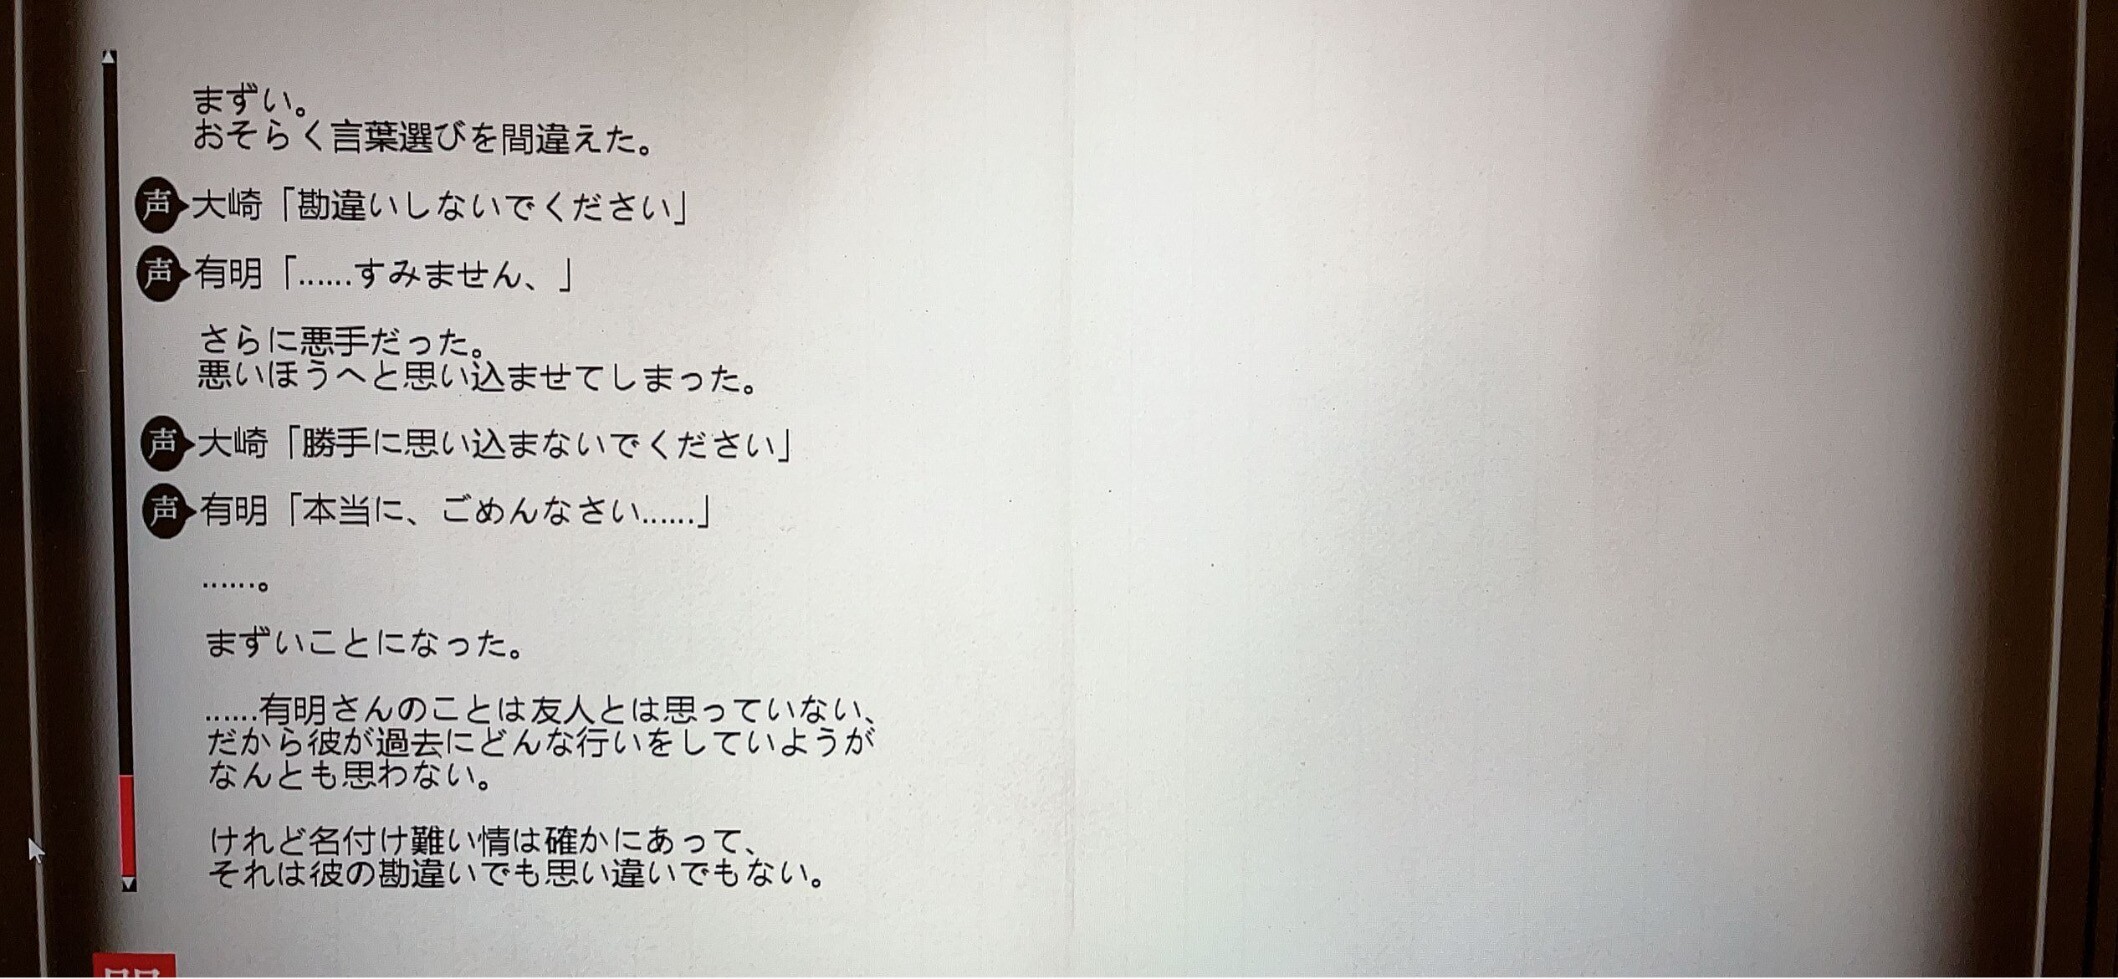 まずい。
おそらく言葉選びを間違えた。
声 大崎「勘違いしないでください」
声 有明「……すみません、」
さらに悪手だった。
悪いほうへと思い込ませてしまった。
声 大崎「勝手に思い込まないでください」
声 有明「本当に、ごめんなさい……」
……。
まずいことになった。
……有明さんのことは友人とは思っていない、
だから彼が過去にどんな行いをしていようが
なんとも思わない。
けれど名付け難い情は確かにあって、
それは彼の勘違いでも思い違いでもない。